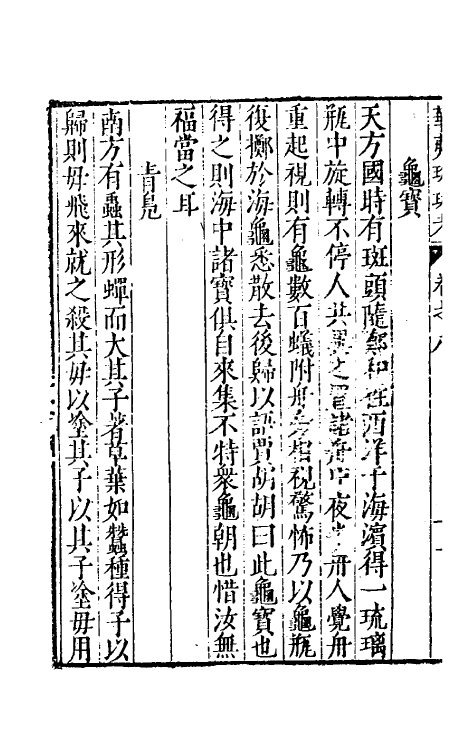 華夷珍玩考 卷之八
龜寶
天方國時有斑頭隨鄭和往西洋于海濱得一琉璃
瓶中旋轉不停人共異之置諸舟中夜半舟人覺舟
重起視則有龜數百蟻附舟旁相視驚怖乃以龜瓶
復擲於海龜悉散去後歸以語賈胡胡曰此龜寶也
得之則海中諸寶俱自來集不特衆龜朝也惜汝無
福當之耳
青凫
南方有蟲其形蟬而大其子著草葉如蠶種得子以
歸則毋飛來就之殺其毋以塗其子以其子塗毋用